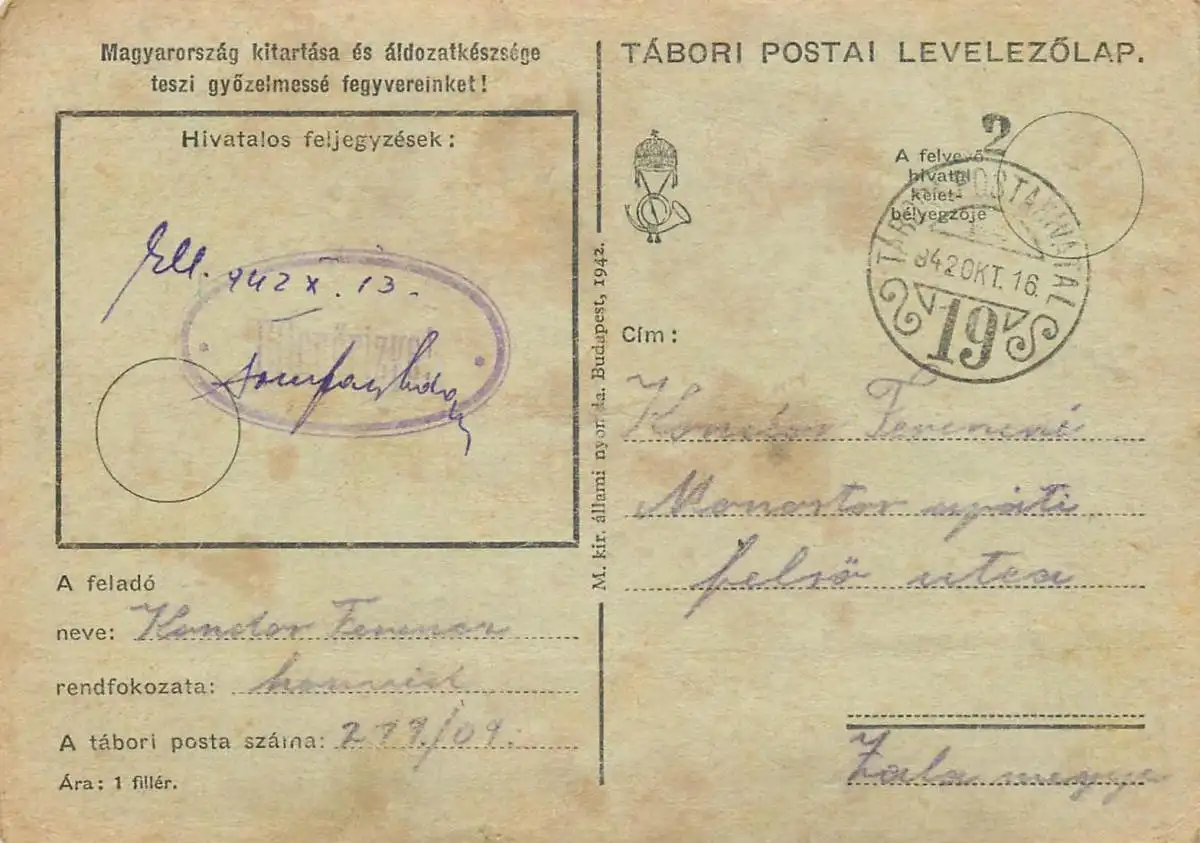 Magyarország kitartása és áldozatkészsége
teszi győzelmessé fegyvereinket!
Hivatalos feljegyzések:
Ell. 942 X. 13.
A feladó
neve: Kondor Ferencz
rendfokozata: honvéd
A tábori posta száma: 219/09.
Ára: 1 fillér.
M. kir. állami nyomda. Budapest, 1942.
TÁBORI POSTAI LEVELEZŐLAP.
2
A felvevő
hivatal
kelet-
bélyegzője
TÁBORI POSTAHIVATAL
942 OKT. 16.
19
Cím:
Kondor Ferencné
Monostor apáti
felső utca
Zala megye